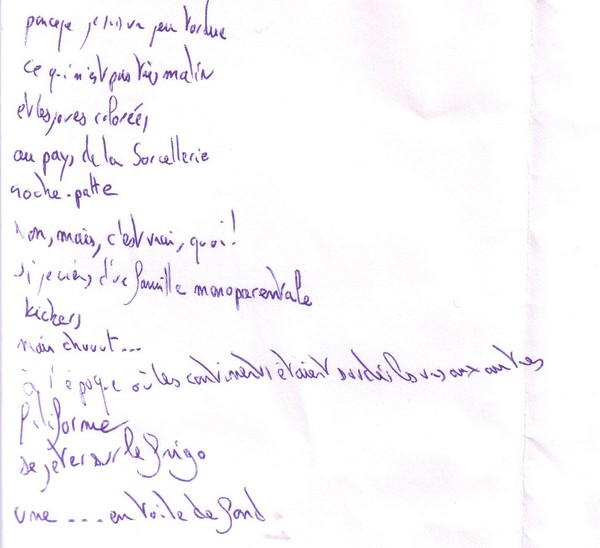 parceque je suis un peu tordue
ce qui n'est pas très malin
et les joues colorées
au pays de la Sorcellerie
à cloche-patte
Non, mais, c'est vrai, quoi!
si je viens d'une famille monoparentale
kickers
mais chuuut...
à l'époque où les continents étaient soudés les uns aux autres
filiforme
se jeter sur le frigo
une ... en toile de fond